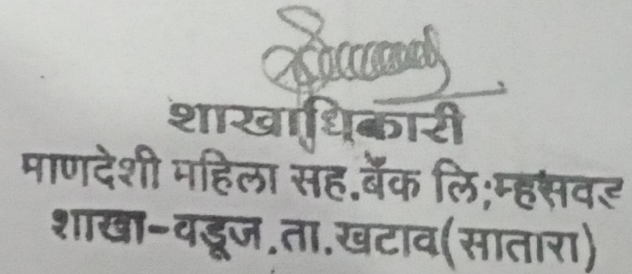 शाखाधिकारी
माणदेशी महिला सह.बँक लि;म्हसवड
शाखा-वडूज.ता.खटाव(सातारा)